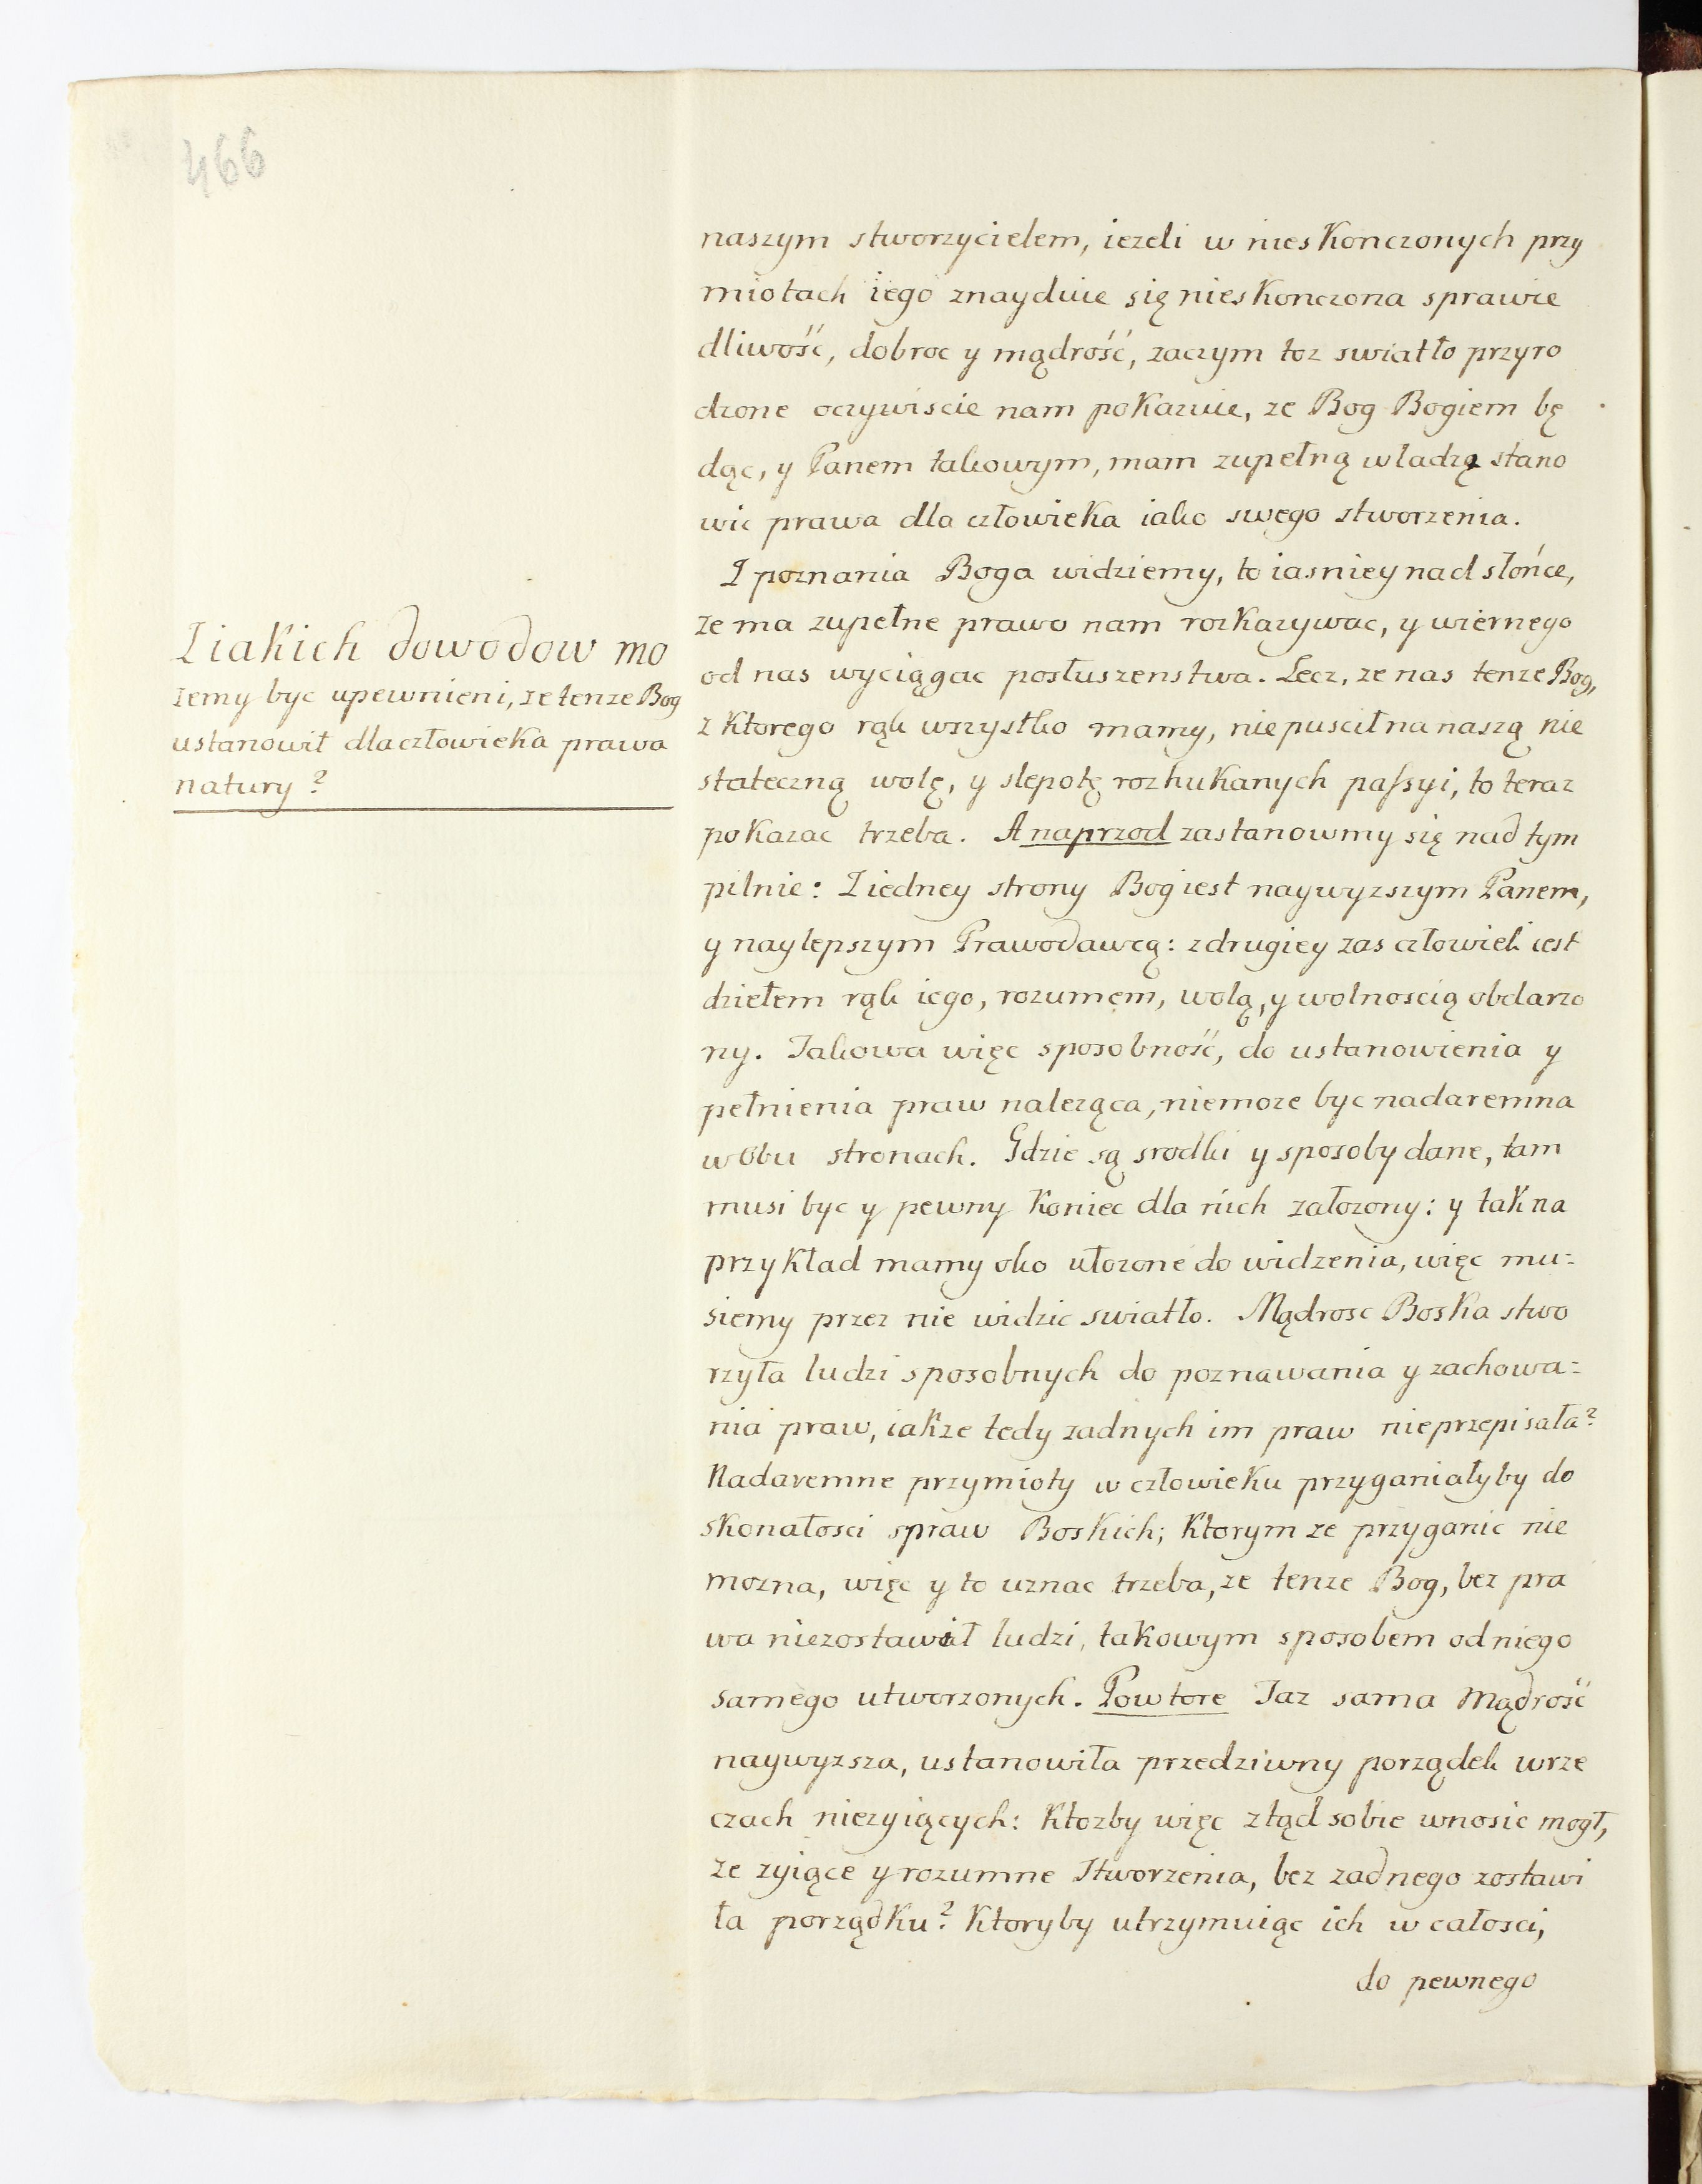 466
naszym stworzycielem, iezeli w nieskonczonych przy
miotach iego znayduie się nieskonczona sprawie
dliwość, dobroc y mądrość, zaczym toz swiatło przyro
dzone oczywiscie nam pokazuie, ze Bog Bogiem bę
dąc, y Panem takowym, mam zupełną wladzą stano
wic prawa dla człowieka iako swego stworzenia.
Z poznania Boga widziemy, to iasniey nad słońce,
ze ma zupełne prawo nam rozkazywac, y wiernego
od nas wyciągac posłuszenstwa. Lecz, ze nas tenze Bog,
z ktorego rąk wszystko mamy, niepuscił na naszą nie
stateczną wolę, y slepotę rozhukanych passyi, to teraz
pokazac trzeba. A naprzod zastanowmy się nad tym
pilnie: Z iedney strony Bog iest naywyzszym Panem,
y naylepszym Prawodawcą: z drugiey zas człowiek iest
dziełem rąk iego, rozumem, wolą, y wolnoscią obdarzo
ny. Takowa więc sposobność, do ustanowienia y
pełnienia praw naleząca, niemoze byc nadaremna
w obu stronach. Gdzie są srodki y sposoby dane, tam
musi byc y pewny koniec dla nich załozony: y tak na
przykład mamy oko ułozone do widzenia, więc mu=
siemy przez nie widzic swiatło. Mądrosc Boska stwo
rzyła ludzi sposobnych do poznawania y zachowa=
nia praw, iakze tedy zadnych im praw nieprzepisała?
Nadaremne przymioty w człowieku przyganiałyby do
skonałosci spraw Boskich; ktorym ze przyganic nie
mozna, więc y to uznac trzeba, ze tenze Bog, bez pra
wa niezostawił ludzi, takowym sposobem od niego
samego utworzonych. Powtore Taz sama Mądrość
naywyzsza, ustanowiła przedziwny porządek w rze
czach niezyiących: ktozby więc ztąd sobie wnosic mogł,
ze zyiące y rozumne Stworzenia, bez zadnego zostawi
ła porządku? ktoryby utrzymuiąc ich w całosci,
do pewnego
Z iakich dowodow mo
zemy byc upewnieni, ze tenze Bog
ustanowił dla człowieka prawa
natury?